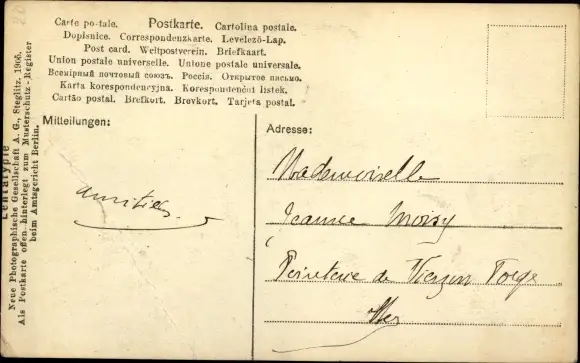 Carte postale. Postkarte. Cartolina postale.
Dopisnice. Correspondenzkarte. Levelező-Lap.
Post card. Weltpostverein. Briefkaart.
Union postale universelle. Unione postale universale.
Всемірный почтовый союзъ. Россія. Открытое письмо.
Karta korespondencyjna. Korespondenční listek.
Cartão postal. Brefkort. Brevkort. Tarjeta postal.
Neue Photographische Gesellschaft A. G., Steglitz, 1905.
Als Postkarte offen hinterlegt zum Musterschutz-Register
beim Amtsgericht Berlin.
Mitteilungen:
amitiés
Adresse:
Mademoiselle
Jeanne
de Vierzon Forge